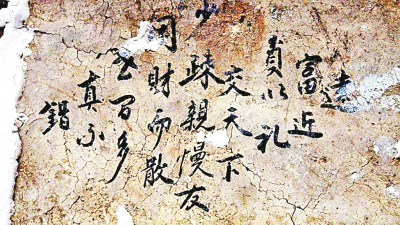 遠
富近
貴以礼
交天下
少疎親慢友
同財而散
百多
真不
錯